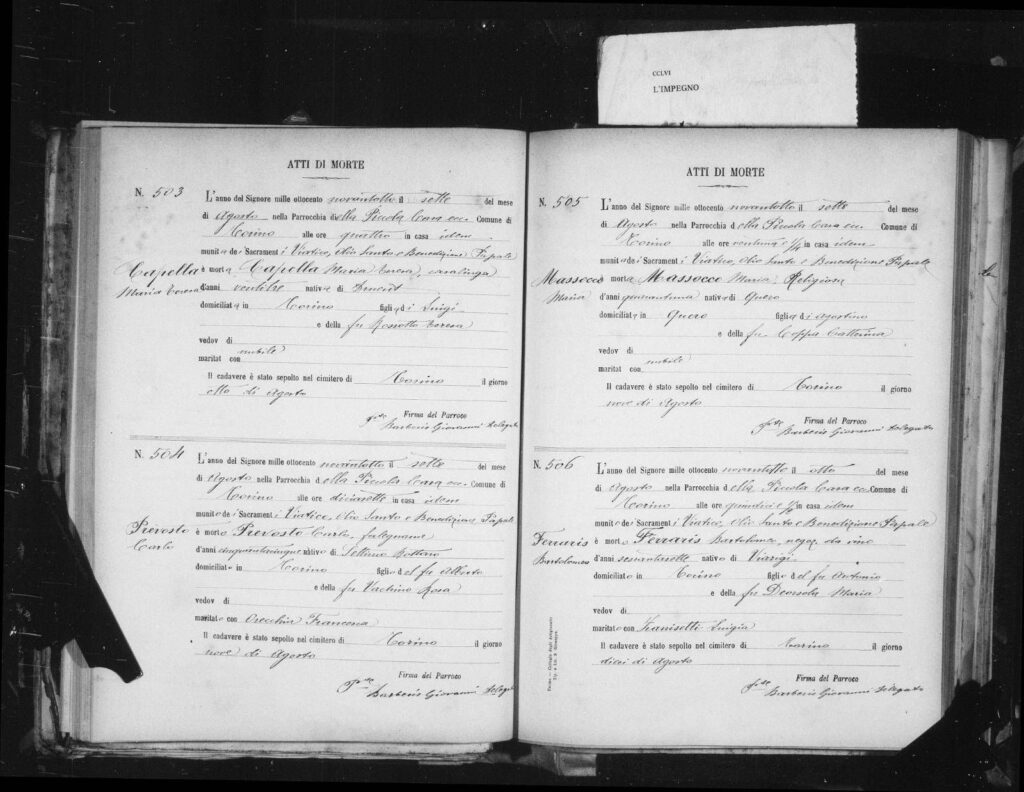 CCLVI
L'IMPEGNO
ATTI DI MORTE
N. 503
L'anno del Signore mille ottocento novantotto il sette del mese
di Agosto nella Parrocchia della Piccola Casa ec. Comune di
Torino alle ore quattro in casa idem
munita dei Sacramenti Viatico, Olio Santo e Benedizione Papale
Capella
Maria Teresa
è morta Capella Maria Teresa, casalinga
d'anni ventitre nativa di
domiciliata in Torino figlia di Luigi
e della fu Rossotto Teresa
vedov di
maritat con nubile
Il cadavere è stato sepolto nel cimitero di Torino il giorno
otto di Agosto
Firma del Parroco
Barberis Giovanni Delegato
N. 504
L'anno del Signore mille ottocento novantotto il sette del mese
di Agosto nella Parrocchia della Piccola Casa ec. Comune di
Torino alle ore diciasette in casa idem
munito dei Sacramenti Viatico, Olio Santo e Benedizione Papale
Prevosto
Carlo
è morto Prevosto Carlo, falegname
d'anni cinquantacinque nativo di Settimo Rottaro
domiciliato in Torino figlio del fu Alberto
e della fu Rosa
vedov di
maritato con Francesca
Il cadavere è stato sepolto nel cimitero di Torino il giorno
nove di Agosto
Firma del Parroco
Barberis Giovanni Delegato
Torino — Collegio degli Artigianelli
Tip. e Lib. S. Giuseppe
ATTI DI MORTE
N. 505
L'anno del Signore mille ottocento novantotto il sette del mese
di Agosto nella Parrocchia della Piccola Casa ec. Comune di
Torino alle ore ventuna e 1/4 in casa idem
munita dei Sacramenti Viatico, Olio Santo e Benedizione Papale
Massocco
Maria
è morta Massocco Maria, Religiosa
d'anni quarantuna nativa di Quero
domiciliata in Quero figlia di Agostino
e della fu Coppa Catterina
vedov di
maritat con nubile
Il cadavere è stato sepolto nel cimitero di Torino il giorno
nove di Agosto
Firma del Parroco
Barberis Giovanni Delegato
N. 506
L'anno del Signore mille ottocento novantotto il otto del mese
di Agosto nella Parrocchia della Piccola Casa ec. Comune di
Torino alle ore quindici e 1/2 in casa idem
munito dei Sacramenti Viatico, Olio Santo e Benedizione Papale
Ferraris
Bartolomeo
è morto Ferraris Bartolomeo, negoz. da vino
d'anni sessantasette nativo di Viarigi
domiciliato in Torino figlio del fu Antonio
e della fu Deorsola Maria
vedov di
maritato con Luigia
Il cadavere è stato sepolto nel cimitero di Torino il giorno
dieci di Agosto
Firma del Parroco
Barberis Giovanni Delegato